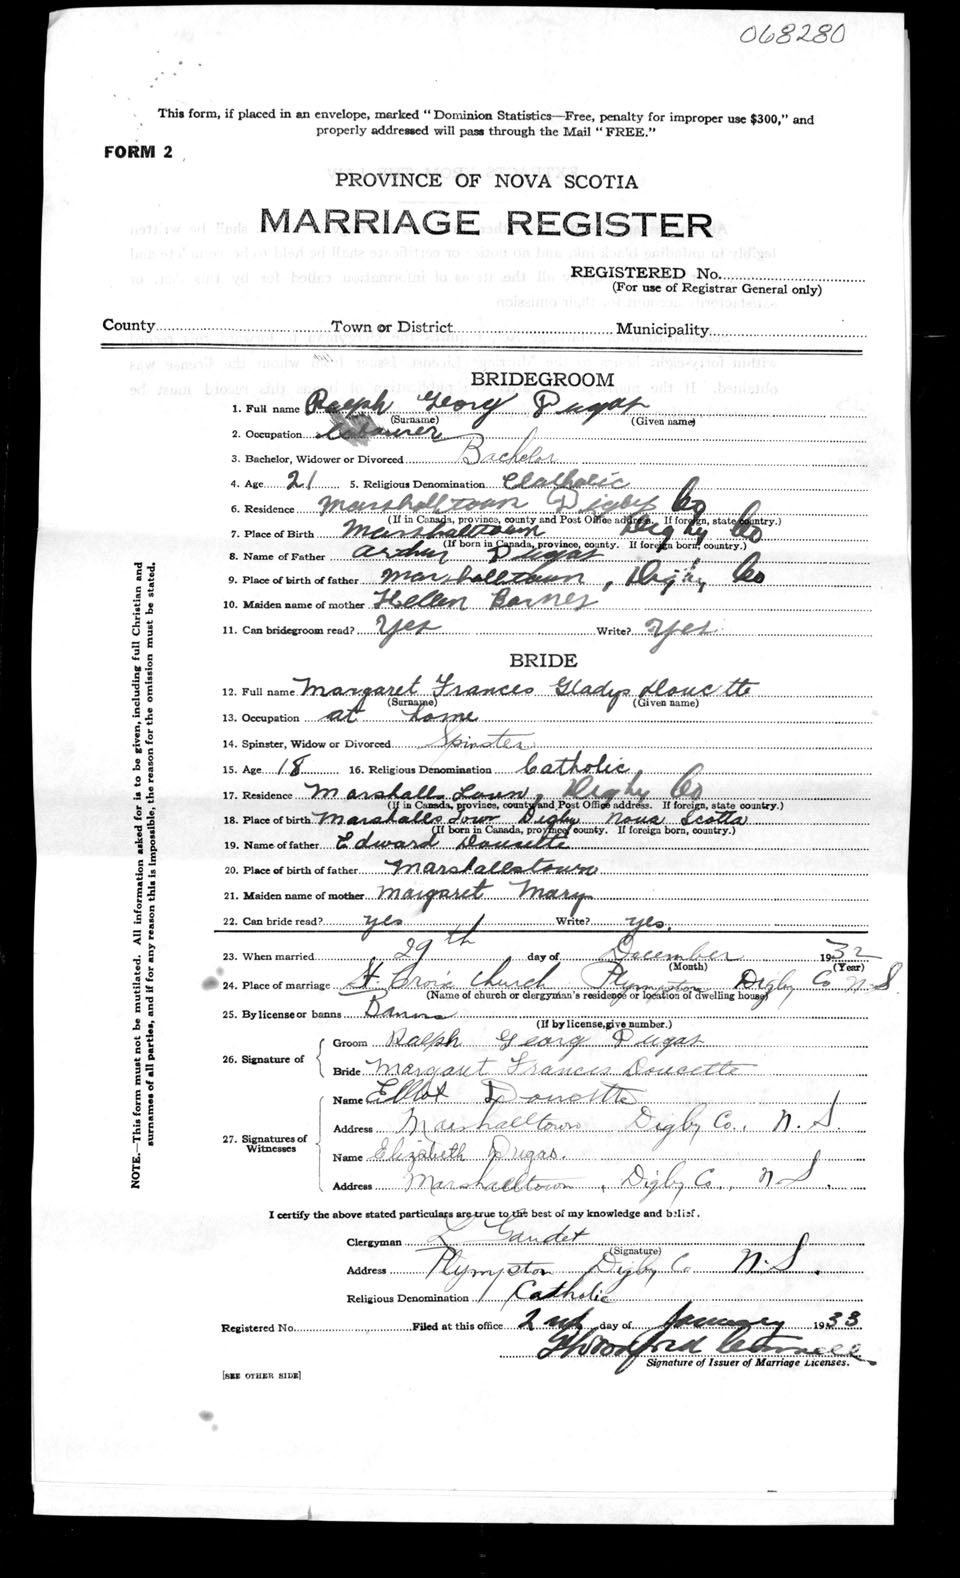 068280
This form, if placed in an envelope, marked "Dominion Statistics—Free, penalty for improper use $300," and
properly addressed will pass through the Mail "FREE."
FORM 2
PROVINCE OF NOVA SCOTIA
MARRIAGE REGISTER
REGISTERED No.
(For use of Registrar General only)
County Town or District Municipality
BRIDEGROOM
1. Full name Ralph Georg Dugas
(Surname) (Given name)
2. Occupation Labourer
3. Bachelor, Widower or Divorced Bachelor
4. Age 21 5. Religious Denomination Catholic
6. Residence Marshalltown Digby Co
(If in Canada, province, county and Post Office address. If foreign, state country.)
7. Place of Birth Marshalltown Digby Co
(If born in Canada, province, county. If foreign born, country.)
8. Name of Father Arthur Dugas
9. Place of birth of father Marshalltown, Digby Co
10. Maiden name of mother Hellen Barnes
11. Can bridegroom read? Yes Write? Yes
BRIDE
12. Full name Margaret Frances Gladys Doucette
(Surname) (Given name)
13. Occupation at home
14. Spinster, Widow or Divorced Spinster
15. Age 18 16. Religious Denomination Catholic
17. Residence Marshalls Town, Digby Co
(If in Canada, province, county and Post Office address. If foreign, state country.)
18. Place of birth Marshalls Town Digby Nova Scotia
(If born in Canada, province, county. If foreign born, country.)
19. Name of father Edward Doucette
20. Place of birth of father Marshallstown
21. Maiden name of mother Margaret Mary
22. Can bride read? yes Write? yes.
23. When married 29th day of December 1932
(Month) (Year)
24. Place of marriage St. Croix Church Plympton Digby Co N.S.
(Name of church or clergyman's residence or location of dwelling house)
25. By license or banns Banns
(If by license, give number.)
26. Signature of Groom Ralph Georg Dugas
Bride Margaret Frances Doucette
27. Signatures of Witnesses Name Elliot Doucette
Address Marshalltown Digby Co., N.S.
Name Elizabeth Dugas.
Address Marshalltown, Digby Co., N.S.
I certify the above stated particulars are true to the best of my knowledge and belief.
Clergyman L Gaudet
(Signature)
Address Plympton Digby Co N.S.
Religious Denomination Catholic
Registered No. Filed at this office 2nd day of January 1933
Signature of Issuer of Marriage Licenses.
[SEE OTHER SIDE]
NOTE.—This form must not be mutilated. All information asked for is to be given, including full Christian and
surnames of all parties, and if for any reason this is impossible, the reason for the omission must be stated.